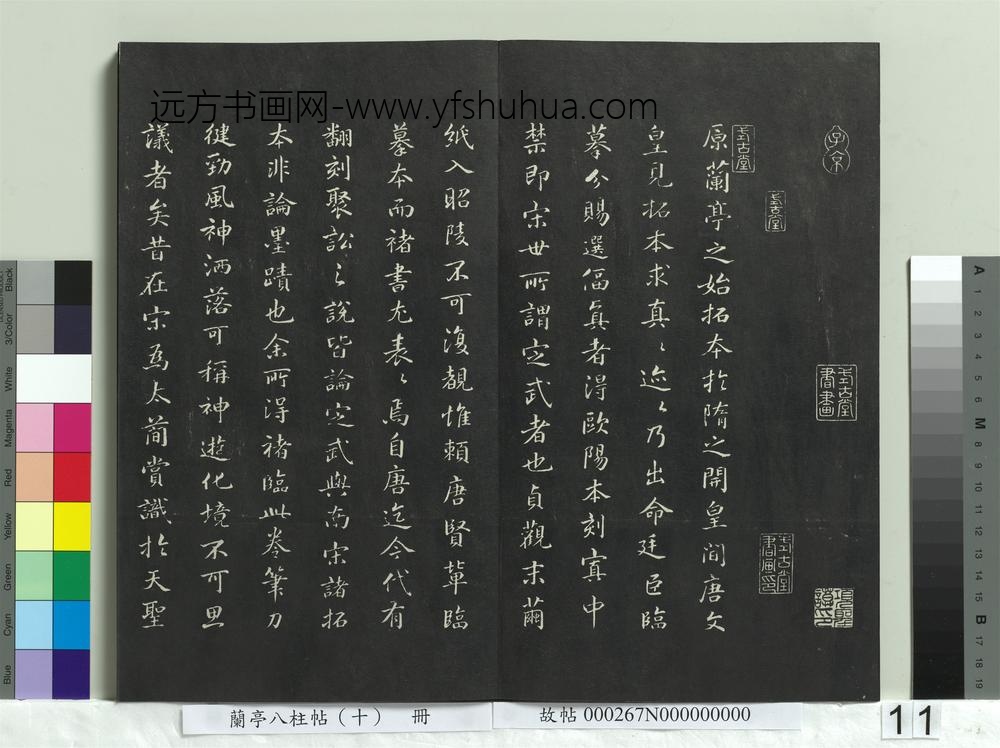 远方书画网-www.yfshuhua.com
子京
原蘭亭之始拓本於隋之開皇間唐文
皇見拓本求真〻迹〻乃出命廷臣臨
摹分賜選逼真者得歐陽本刻寘中
禁即宋世所謂定武者也貞觀末繭
紙入昭陵不可復覩惟賴唐賢輩臨
摹本而褚書尤表〻焉自唐迄今代有
翻刻聚訟之說皆論定武與南宋諸拓
本非論墨蹟也余所得褚臨此卷筆力
健勁風神洒落可稱神遊化境不可思
議者矣昔在宋為太簡賞識於天聖
蘭亭八柱帖（十） 冊
故帖 000267N000000000
11
Black
3/Color
White
Magenta
Red
Yellow
Green
Cyan
Blue
A
1
2
3
4
5
6
M
8
9
10
11
12
13
14
15
B
17
18
19